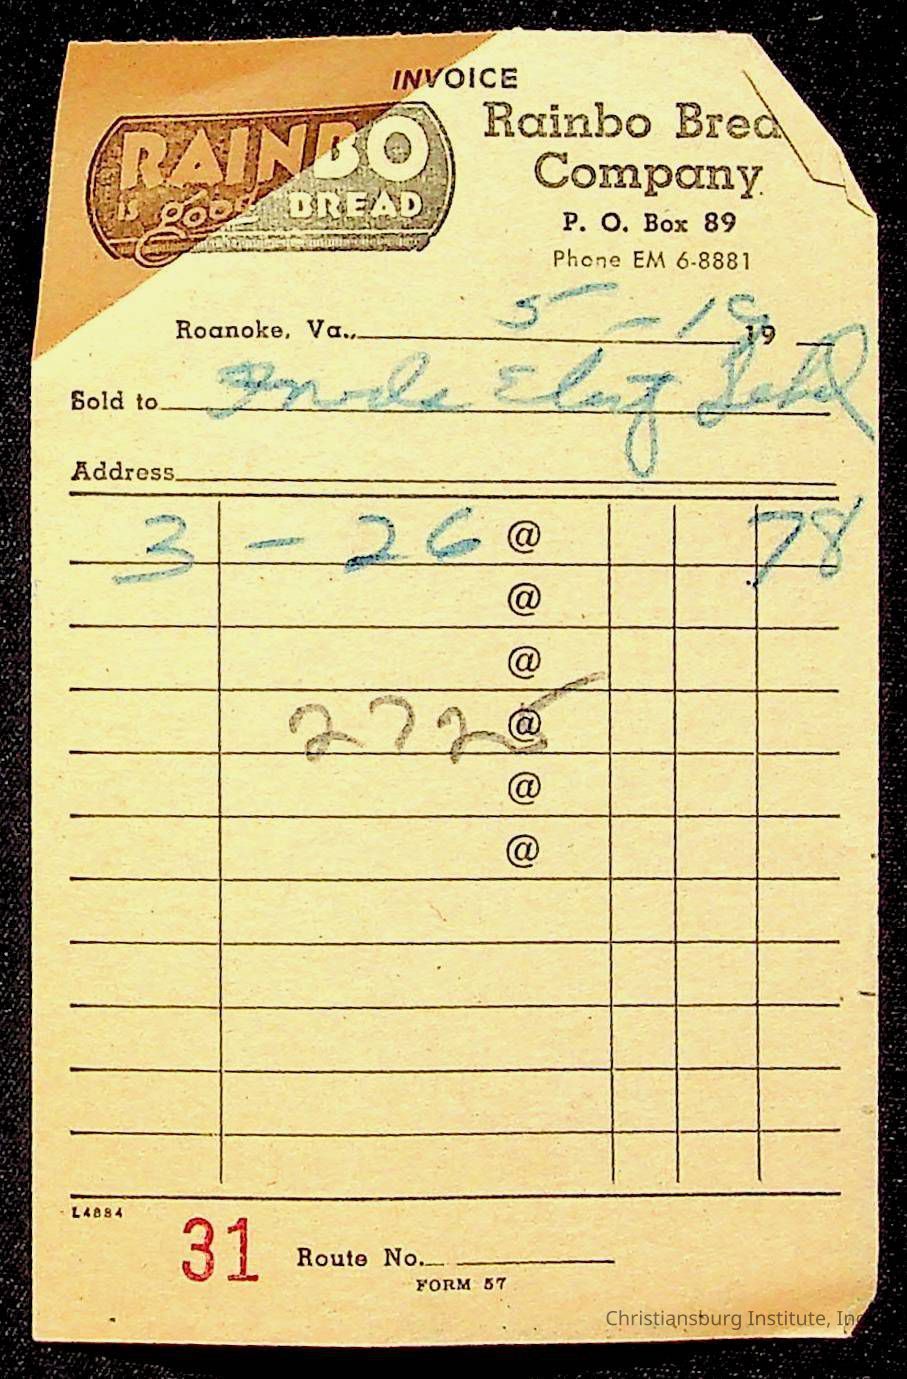 INVOICE
RAINBO
IS good BREAD
Rainbo Bread
Company
P. O. Box 89
Phone EM 6-8881
Roanoke, Va., 5 - 19 19
Sold to
Address
3 - 26 @ 78
@
@
2725 @
@
@
L4884
31 Route No.
FORM 57
Christiansburg Institute, Inc